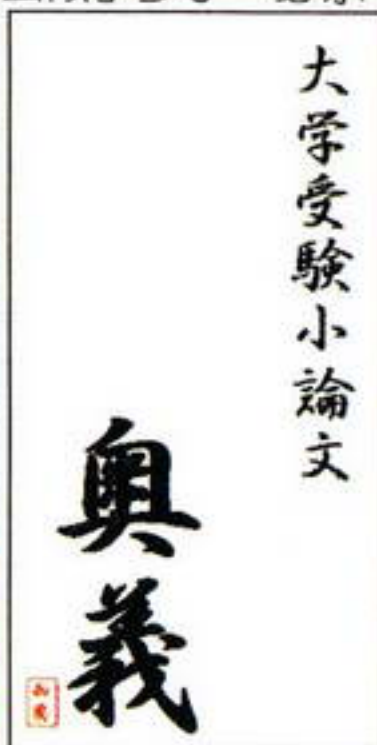 大学受験小論文
奥義